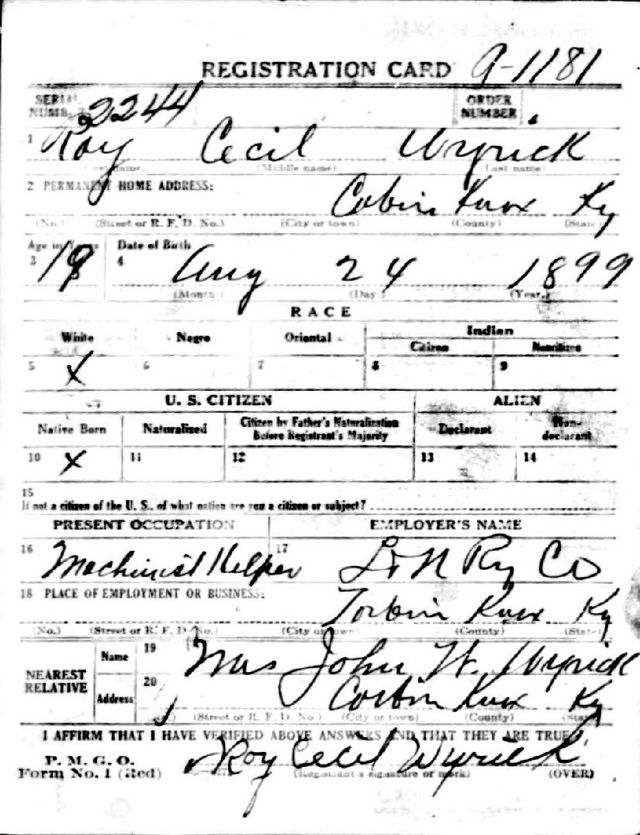 REGISTRATION CARD 9-1181
SERIAL NUMBER 2244 ORDER NUMBER
1 Roy Cecil Wyrick
(First name) (Middle name) (Last name)
2 PERMANENT HOME ADDRESS:
Cobin Knox Ky
(No.) (Street or R. F. D. No.) (City or town) (County) (State)
Age in Years Date of Birth
3 19 4 Aug 24 1899
(Month) (Day) (Year)
RACE
White Negro Oriental Indian
Citizen Noncitizen
5 X 6 7 8 9
U. S. CITIZEN ALIEN
Native Born Naturalized Citizen by Father's Naturalization Before Registrant's Majority Declarant Non-declarant
10 X 11 12 13 14
15
If not a citizen of the U. S., of what nation are you a citizen or subject?
PRESENT OCCUPATION EMPLOYER'S NAME
16 Machinist Helper 17 L & N Ry Co
18 PLACE OF EMPLOYMENT OR BUSINESS:
Corbin Knox Ky
(No.) (Street or R. F. D. No.) (City or town) (County) (State)
NEAREST RELATIVE Name 19 Mrs John W. Wyrick
Address 20 Corbin Knox Ky
(Street or R. F. D. No.) (City or town) (County) (State)
I AFFIRM THAT I HAVE VERIFIED ABOVE ANSWERS AND THAT THEY ARE TRUE
P. M. G. O.
Form No. 1 (Red) Roy Cecil Wyrick
(Registrant's signature or mark) (OVER)